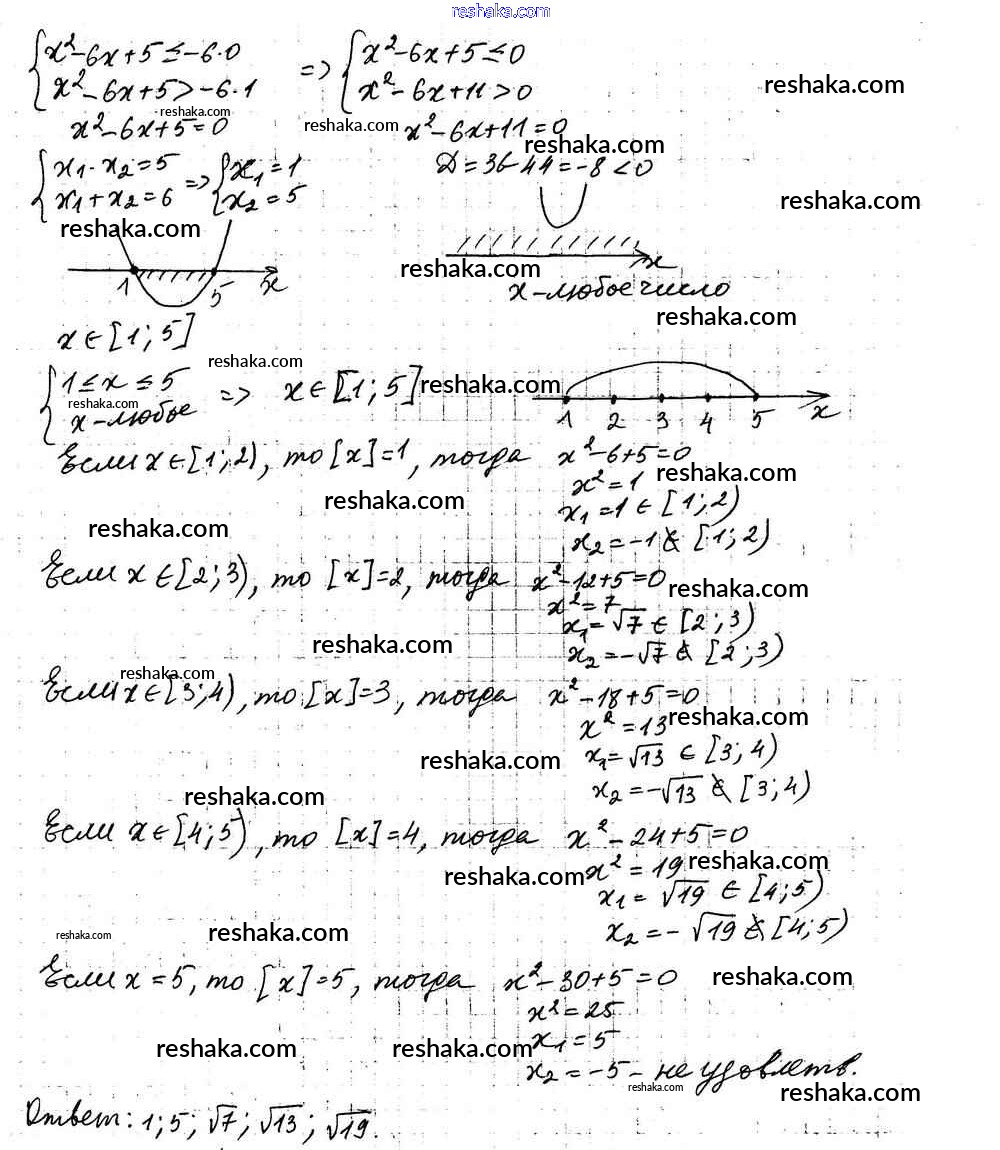 reshaka.com
{x²-6x+5≤-6·0 => {x²-6x+5≤0
{x²-6x+5>-6·1 {x²-6x+11>0
reshaka.com
reshaka.com
reshaka.com
x²-6x+5=0 x²-6x+11=0
reshaka.com
{x₁·x₂=5 => {x₁=1 D=36-44=-8<0
{x₁+x₂=6 {x₂=5
reshaka.com
reshaka.com
reshaka.com
1 5 x x
x-любое число
reshaka.com
x∈[1;5]
reshaka.com
{1≤x≤5 => x∈[1;5]
reshaka.com
reshaka.com
{x-любое
1 2 3 4 5 x
Если x∈[1;2), то [x]=1, тогда x²-6+5=0
reshaka.com
x²=1
reshaka.com
x₁=1∈[1;2)
reshaka.com
x₂=-1∉[1;2)
Если x∈[2;3), то [x]=2, тогда x²-12+5=0
reshaka.com
x²=7
x₁=√7∈[2;3)
reshaka.com
x₂=-√7∉[2;3)
reshaka.com
Если x∈[3;4), то [x]=3, тогда x²-18+5=0
x²=13
reshaka.com
x₁=√13∈[3;4)
reshaka.com
x₂=-√13∉[3;4)
reshaka.com
Если x∈[4;5), то [x]=4, тогда x²-24+5=0
x²=19
reshaka.com
reshaka.com
x₁=√19∈[4;5)
x₂=-√19∉[4;5)
reshaka.com
reshaka.com
Если x=5, то [x]=5, тогда x²-30+5=0
reshaka.com
x²=25
x₁=5
reshaka.com
reshaka.com
x₂=-5-не удовлетв.
reshaka.com
reshaka.com
Ответ: 1; 5; √7; √13; √19.